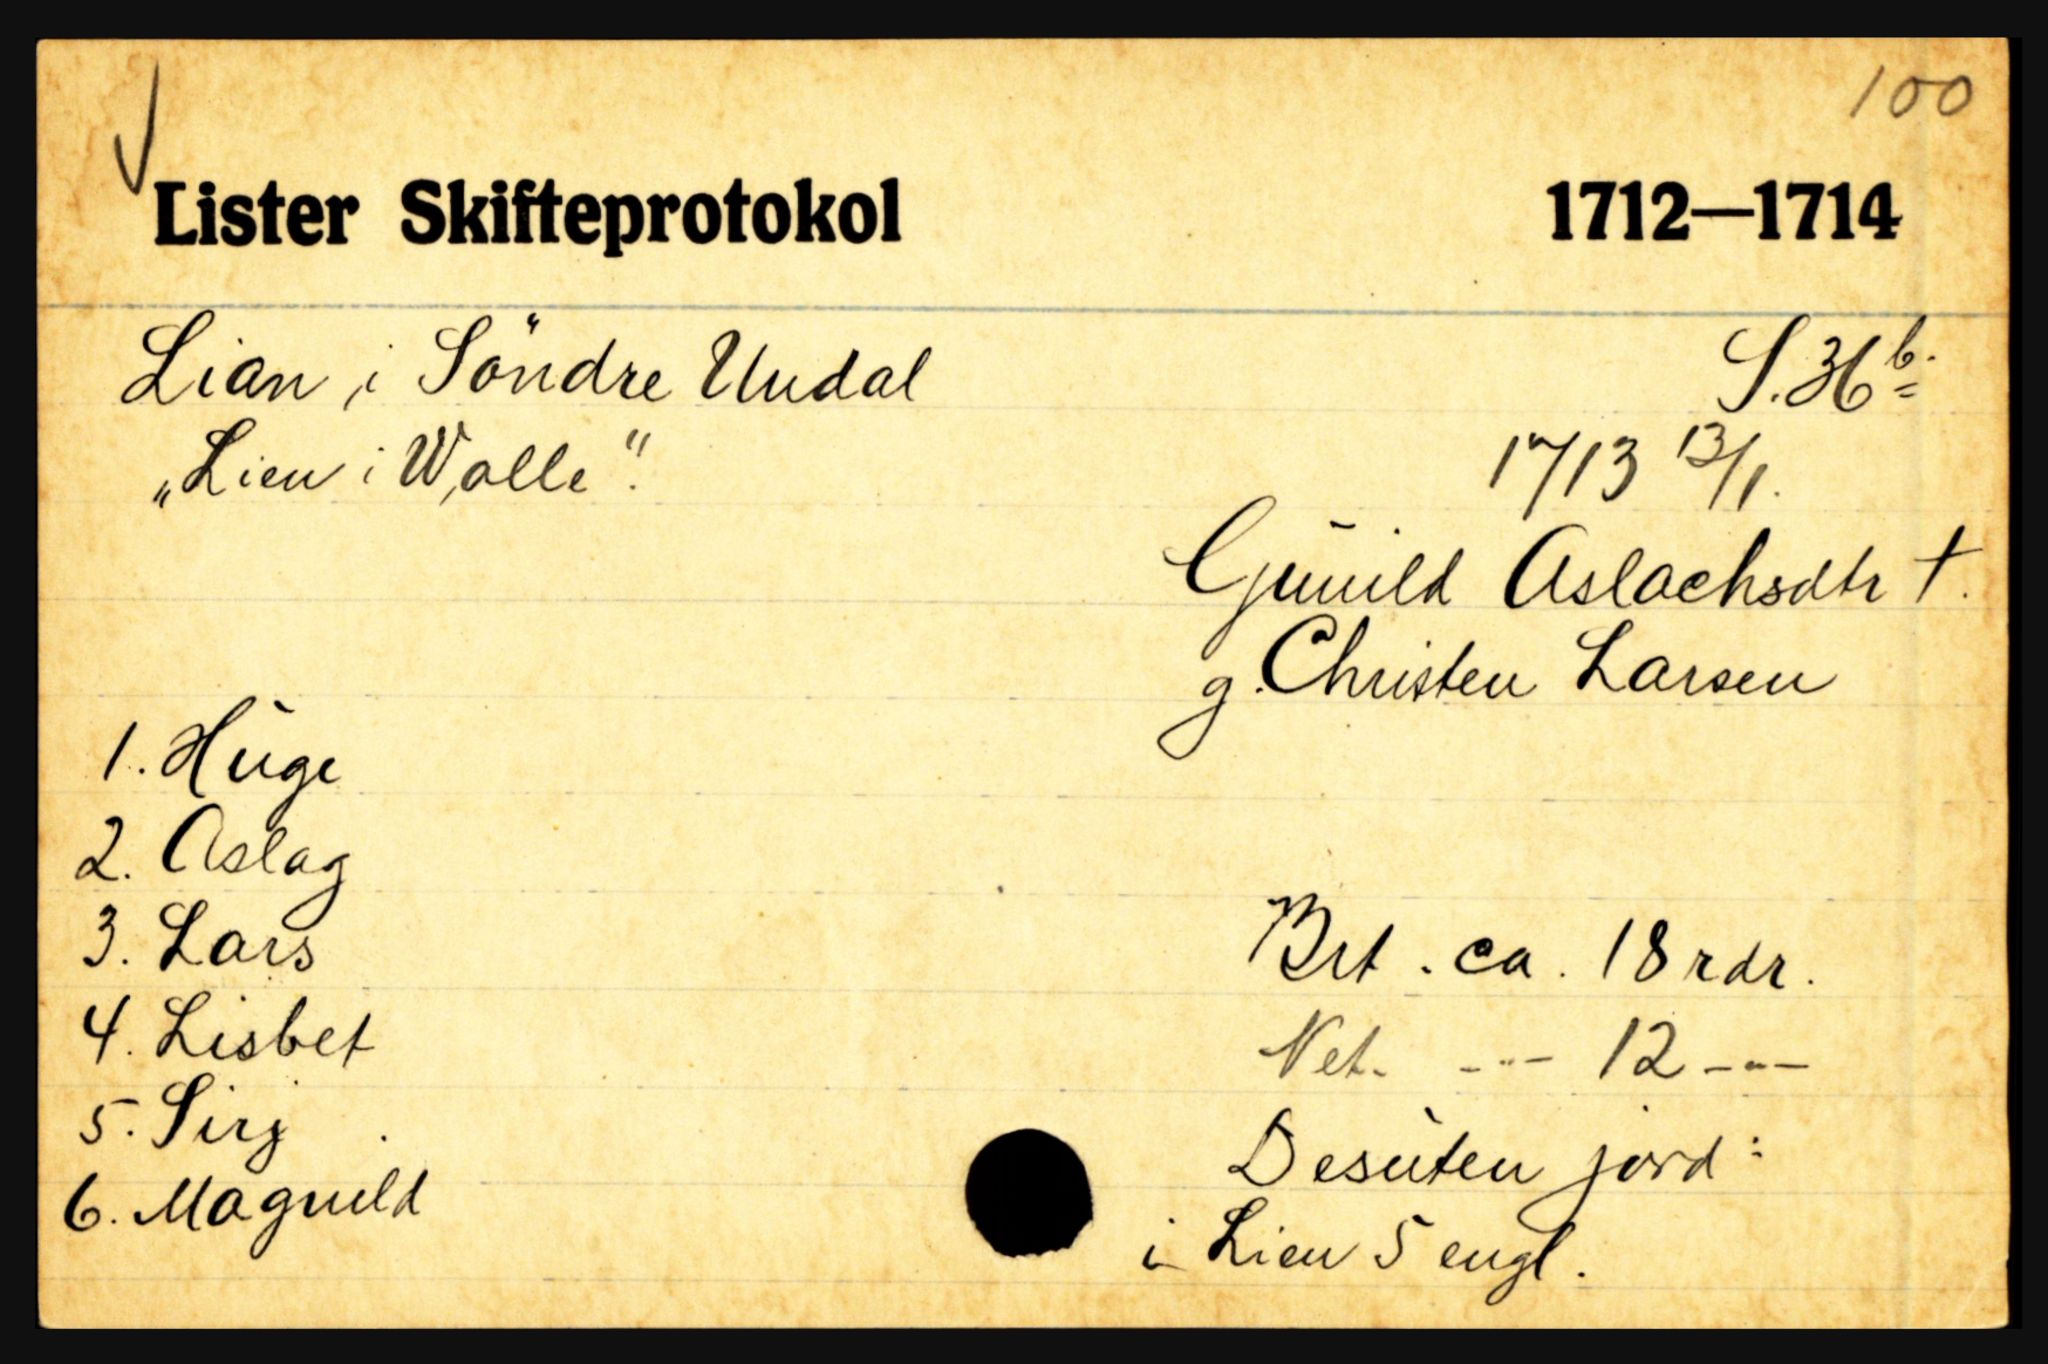 100
Lister Skifteprotokol 1712—1714
Lian i Söndre Undal S. 36 b.
„Lien i Walle“. 1713 13/1.
Gunild Aslachsdtr †.
g. Christen Larsen
1. Huge
2. Aslag
3. Lars
4. Lisbet
5. Sirj
6. Magnild
Brt. ca. 18 rdr.
Net. -"- 12 -"-
Desuten jord:
i Lien 5 engl.